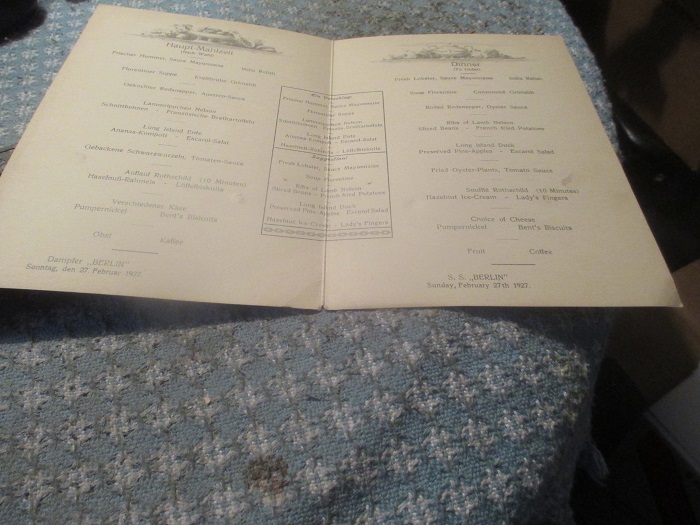 Haupt Mahlzeit
(Nach Wahl)
Frischer Hummer, Sauce Mayonnaise India Relish
Florentiner Suppe Kraftbrühe
Gekochter Rodzunge, Austern-Sauce
Lammrippchen Nelson
Schnittbohnen - Französische Bratkartoffeln
Long Island Ente
Ananas-Kompott - Escarol-Salat
Gebackene Schwarzwurzeln, Tomaten-Sauce
Auflauf Rothschild (10 Minuten)
Haselnuß-Rahmeis - Löffelbiskuits
Verschiedener Käse
Pumpernickel Bent's Biskuits
Obst Kaffee
Dampfer „BERLIN"
Sonntag, den 27. Februar 1927.
Frischer Hummer, Sauce Mayonnaise
Florentiner Suppe
Lammrippchen Nelson
Schnittbohnen - Französische Bratkartoffeln
Long Island Ente
Ananas-Kompott - Escarol-Salat
Haselnuß-Rahmeis - Löffelbiskuits
Suggestion!
Fresh Lobster, Sauce Mayonnaise
Soup Florentine
Ribs of Lamb Nelson
Sliced Beans - French fried Potatoes
Long Island Duck
Preserved Pine-Apples Escarol-Salad
Hazelnut Ice-Cream - Lady's Fingers
Dinner
(To Order)
Fresh Lobster, Sauce Mayonnaise India Relish
Soup Florentine Consommé
Boiled, Oyster Sauce
Ribs of Lamb Nelson
Sliced Beans - French fried Potatoes
Long Island Duck
Preserved Pine-Apples - Escarol Salad
Fried Oyster-Plants, Tomato Sauce
Soufflé Rothschild (10 Minutes)
Hazelnut Ice-Cream - Lady's Fingers
Choice of Cheese
Pumpernickel Bent's Biscuits
Fruit Coffee
S. S. „BERLIN"
Sunday, February 27th 1927.